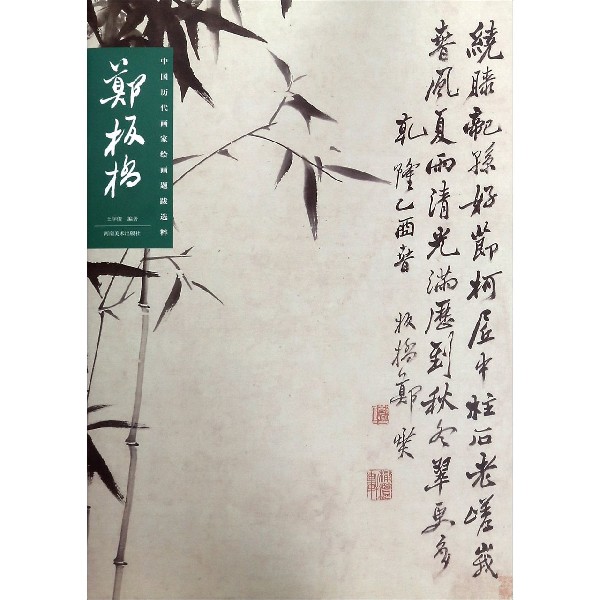 中国历代画家绘画题跋选粹
鄭板橋
编著
河南美术出版社
繞膝龍孫好節柯居中柱石老嵯峨
春風夏雨清光滿歷到秋冬翠更多
乾隆乙酉春 板橋鄭燮